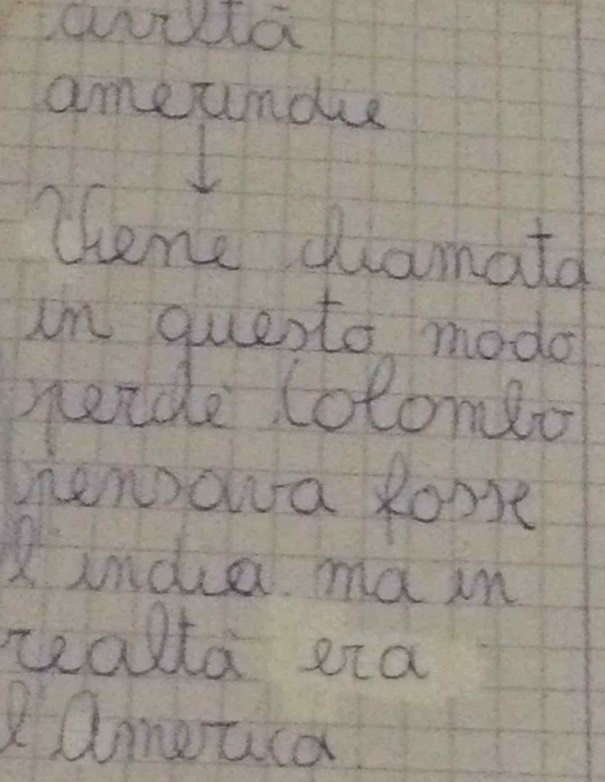 civiltà
amerindie
↓
Viene chiamata
in questo modo
perchè Colombo
pensava fosse
l'india ma in
realtà era
l'America